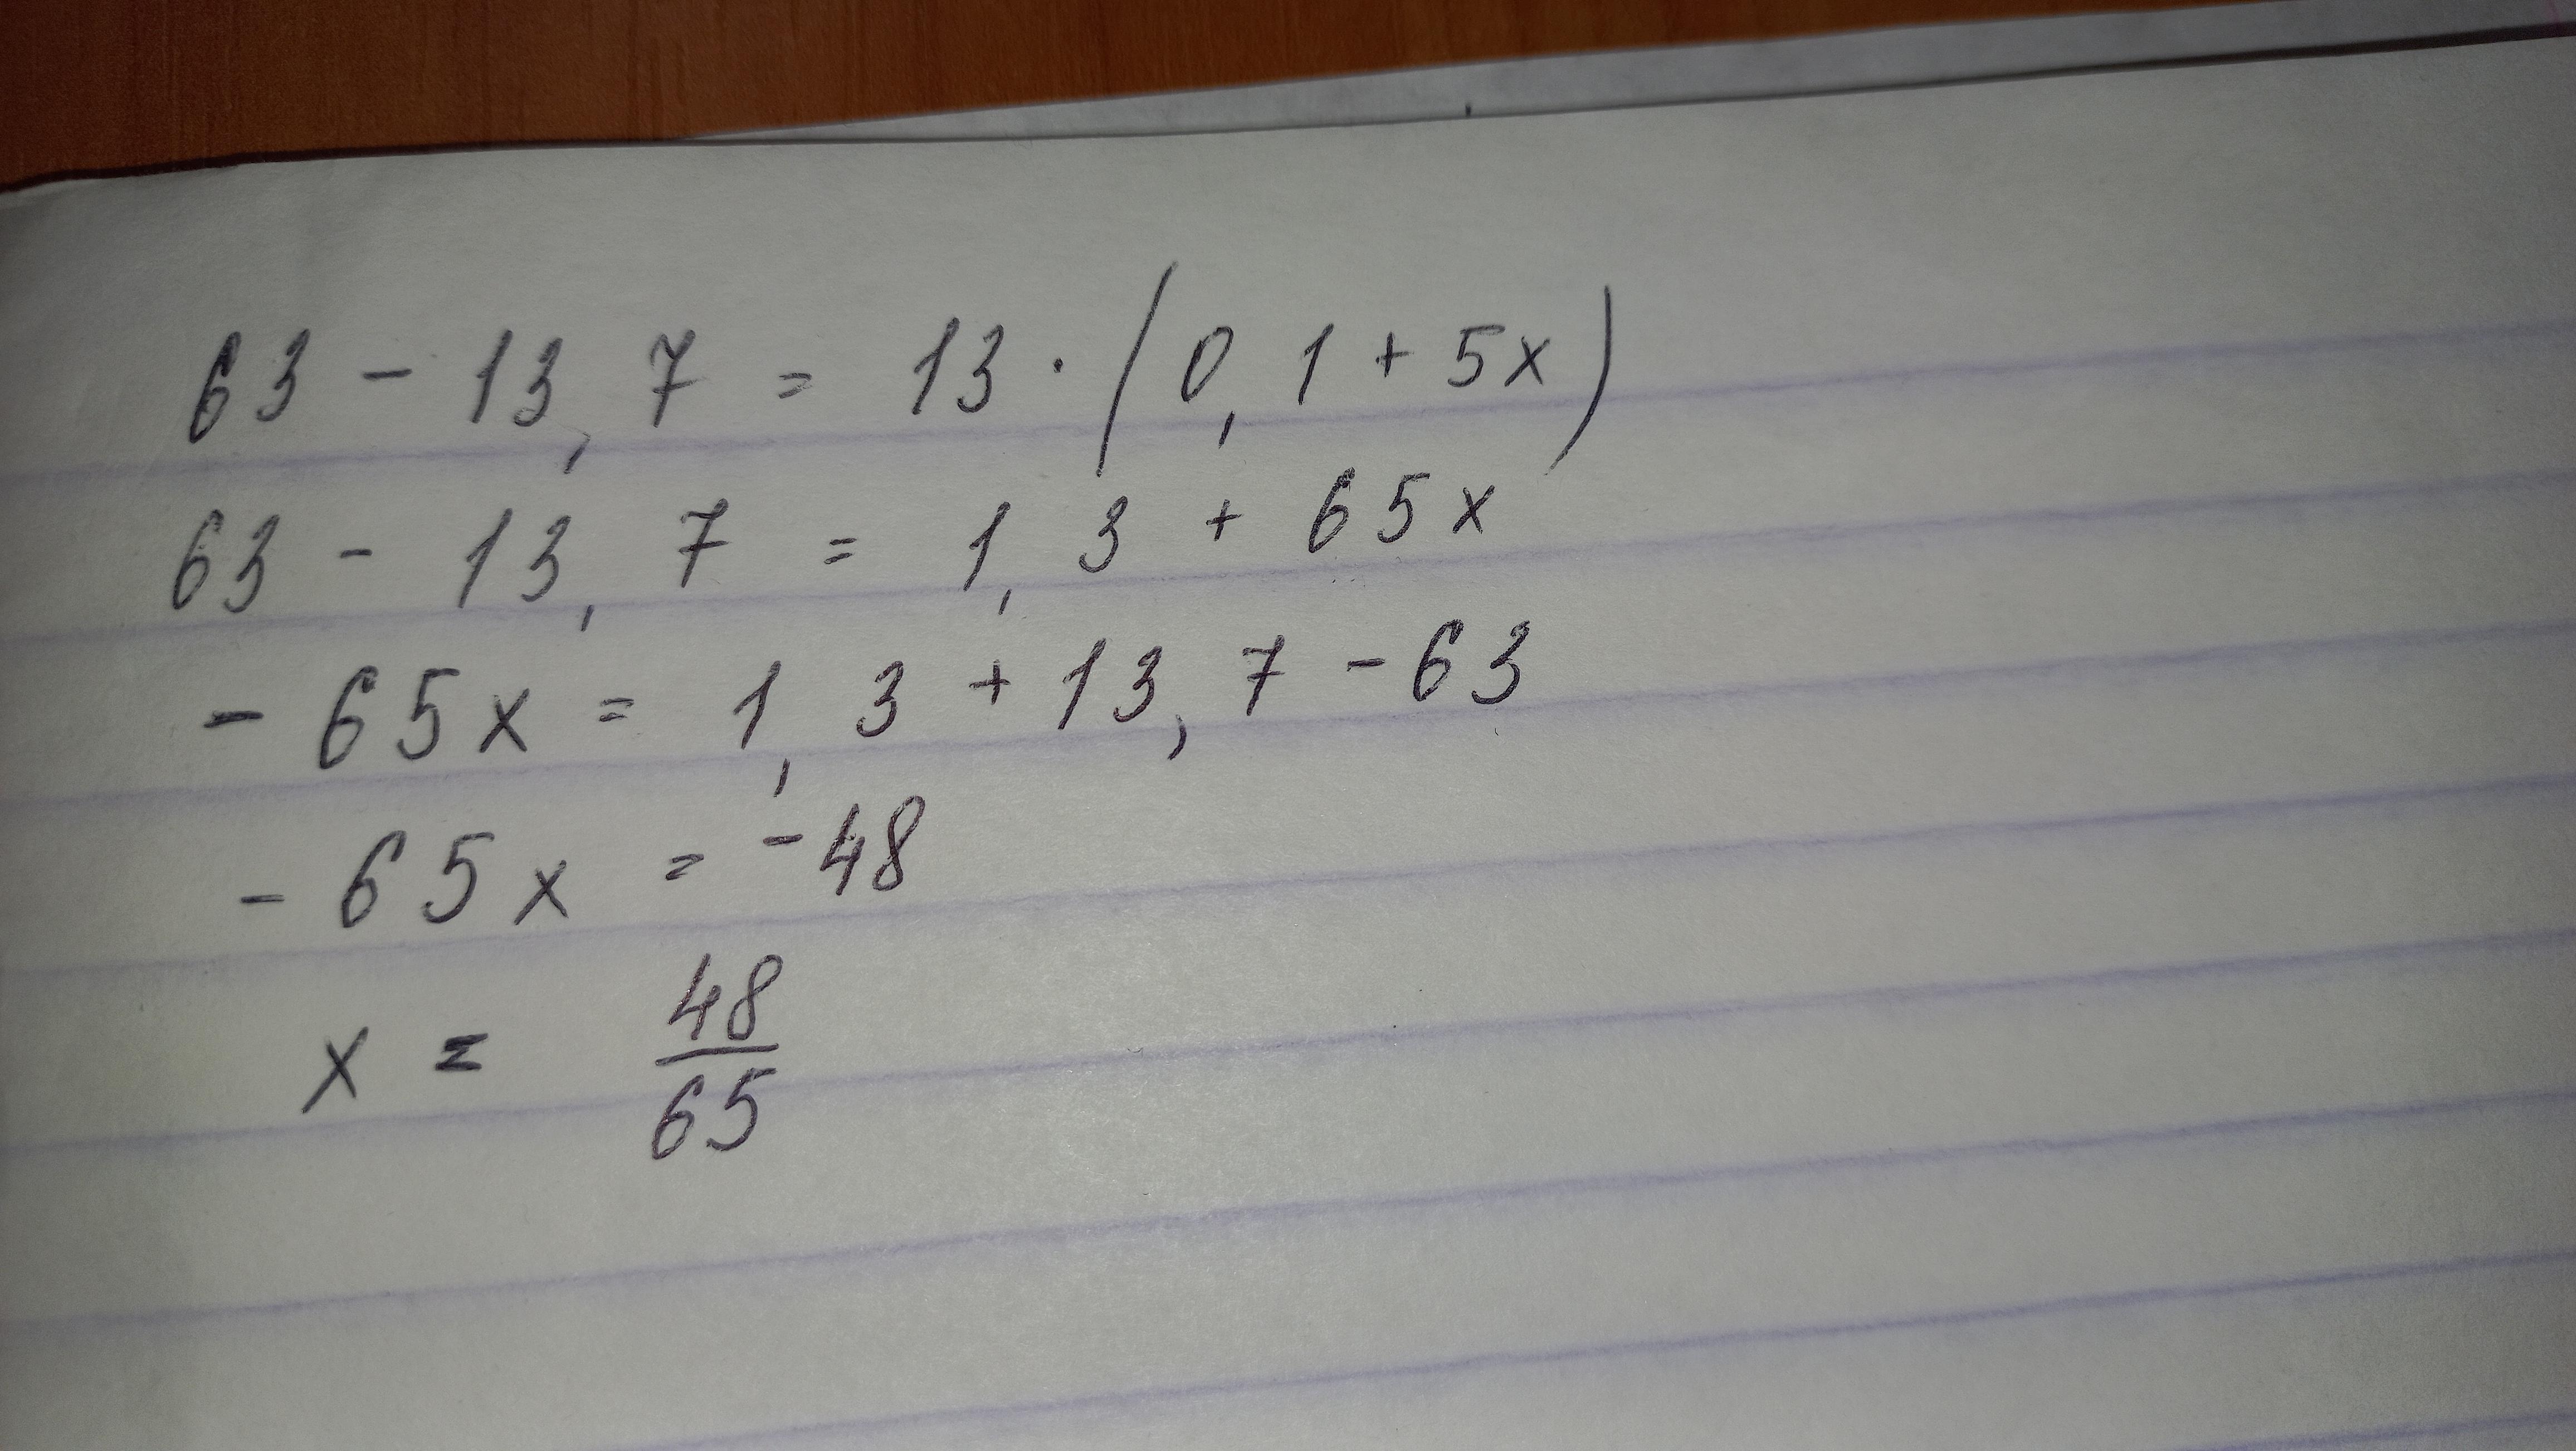 63 - 13,7 = 13 · (0,1 + 5x)
63 - 13,7 = 1,3 + 65x
- 65x = 1,3 + 13,7 - 63
- 65x = -48
x = 48/65